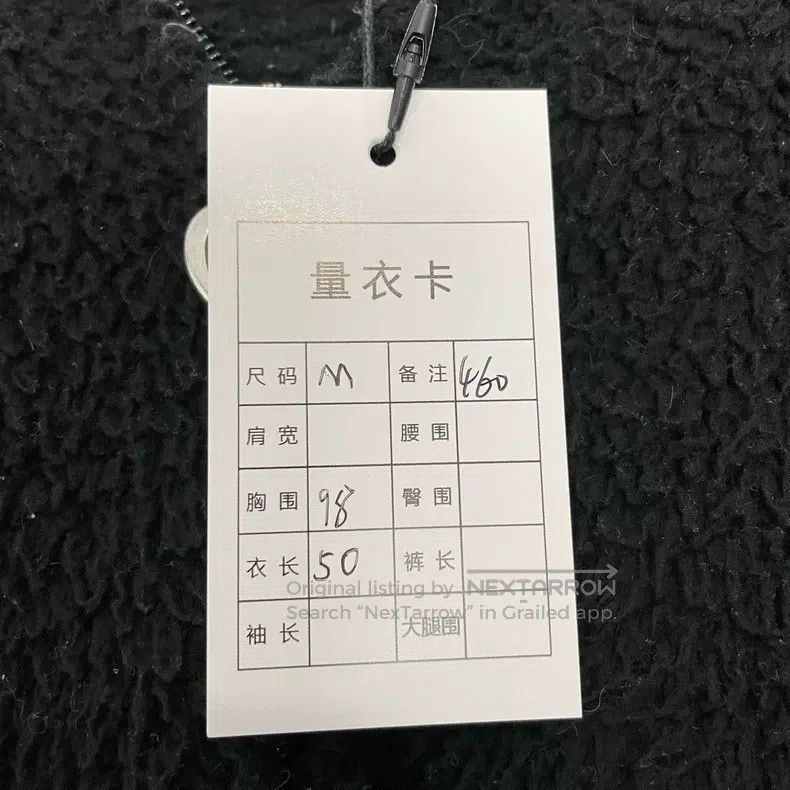 量衣卡
尺码 M 备注 460
肩宽 腰围
胸围 98 臀围
衣长 50 裤长
Original listing by NEXTARROW
Search “NexTarrow” in Grailed app.
袖长 大腿围